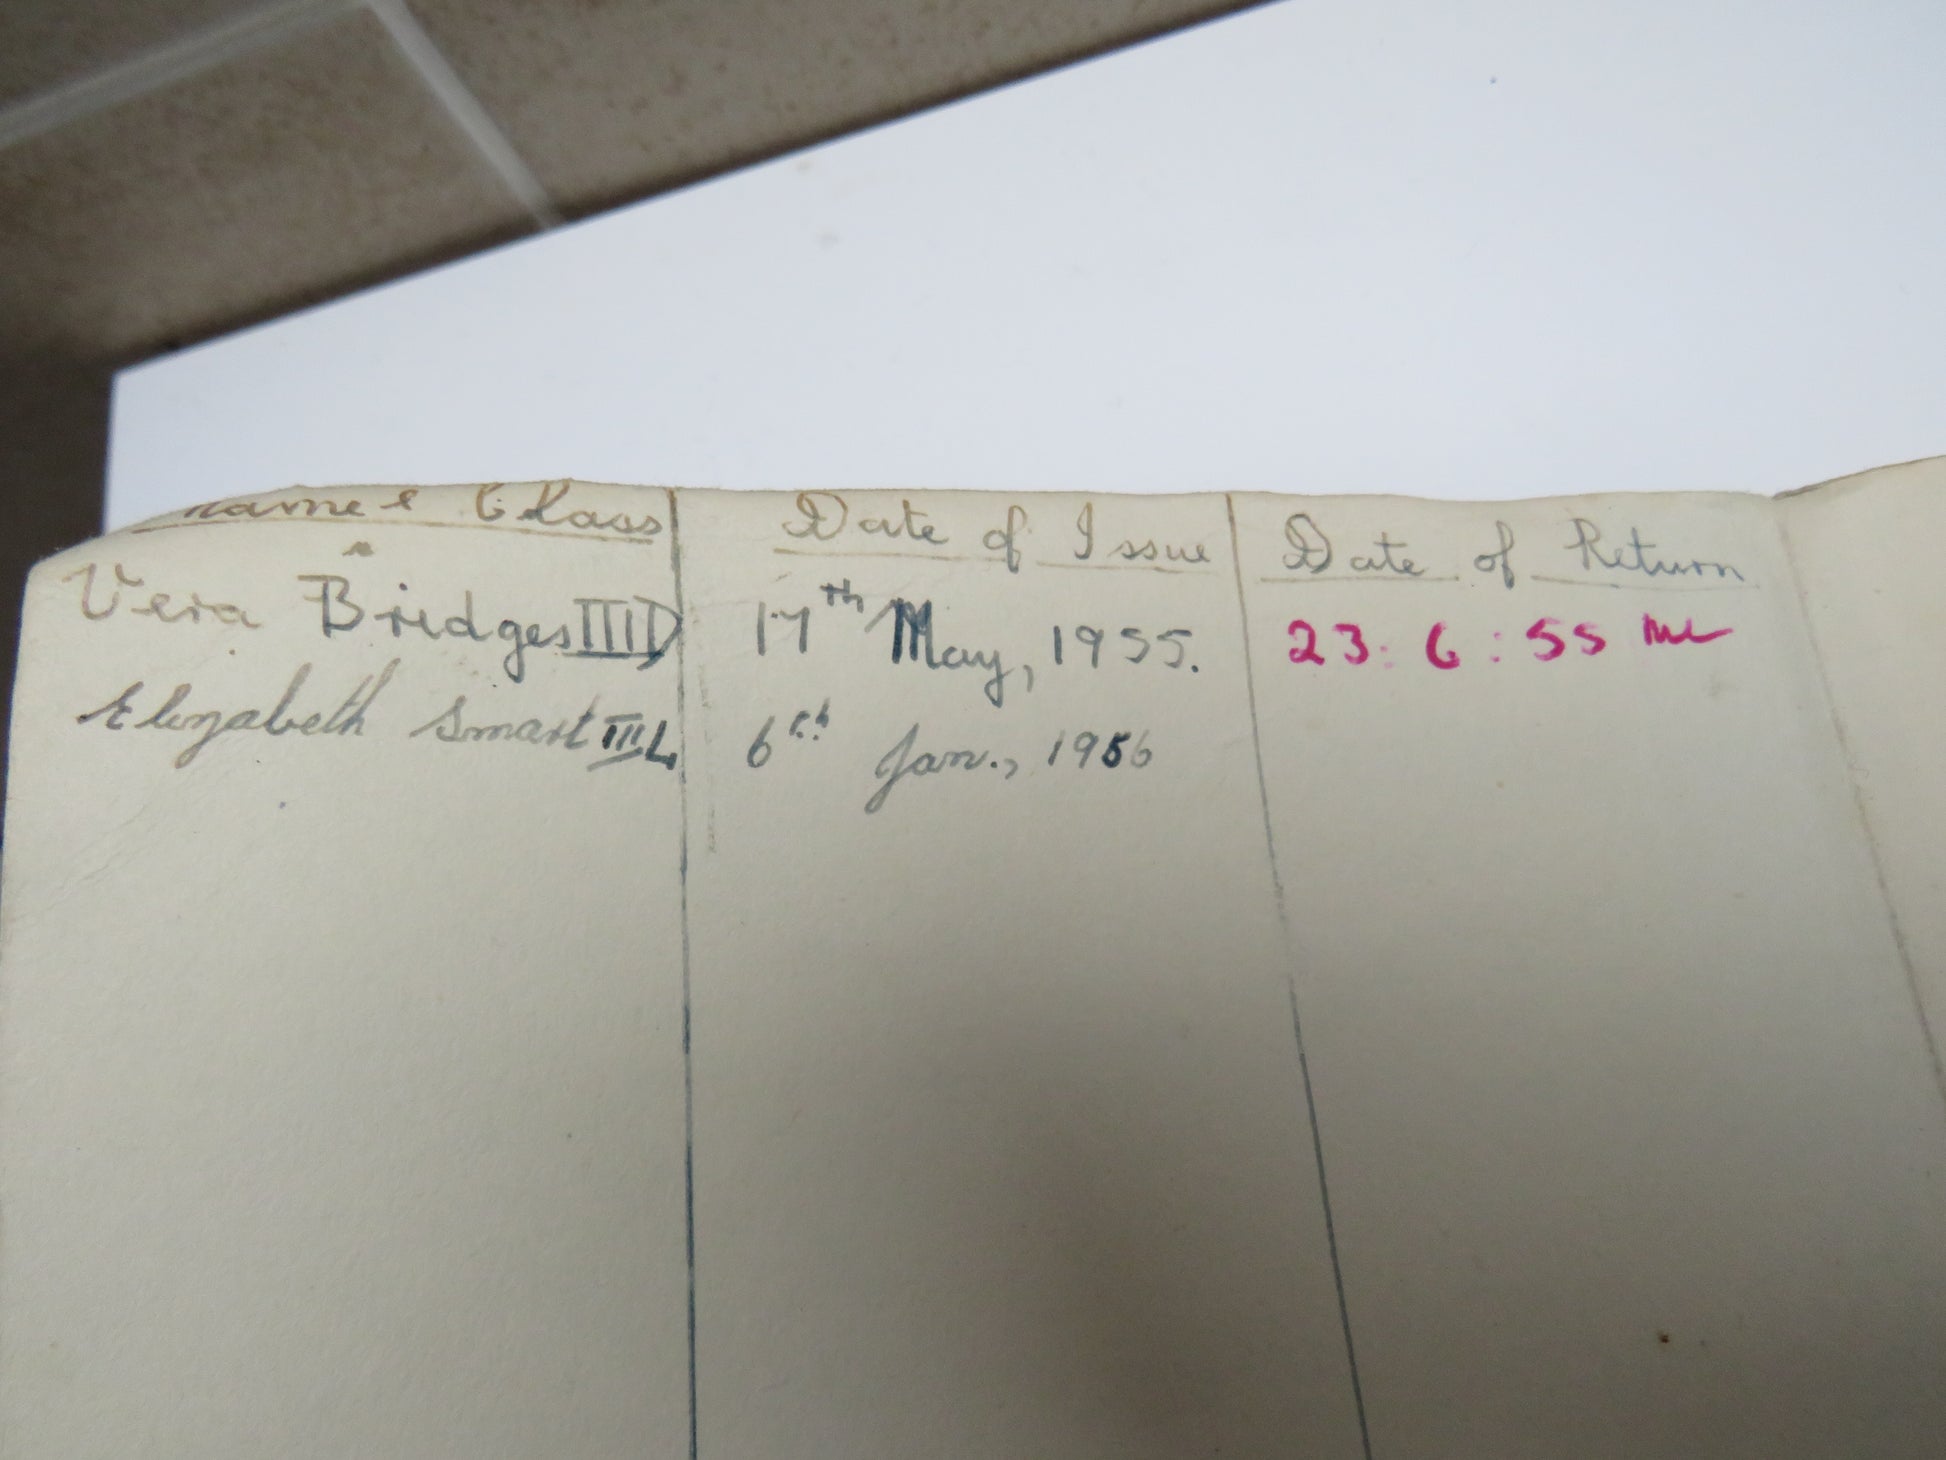 Name & Class Date of Issue Date of Return
Vera Bridges IIID 17th May, 1955. 23: 6: 55
Elizabeth Smart IIIL 6th Jan., 1956